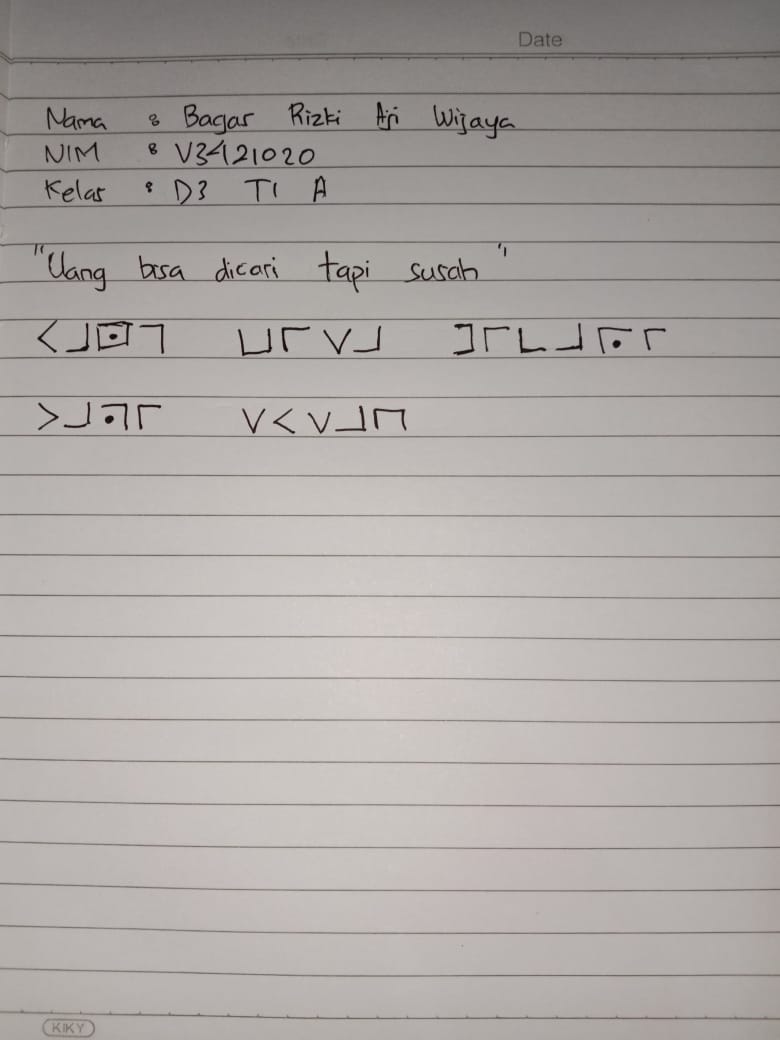 Date
Nama : Bagas Rizki Aji Wijaya
NIM : V3421020
Kelas : D3 TI A
"Uang bisa dicari tapi susah"
KIKY